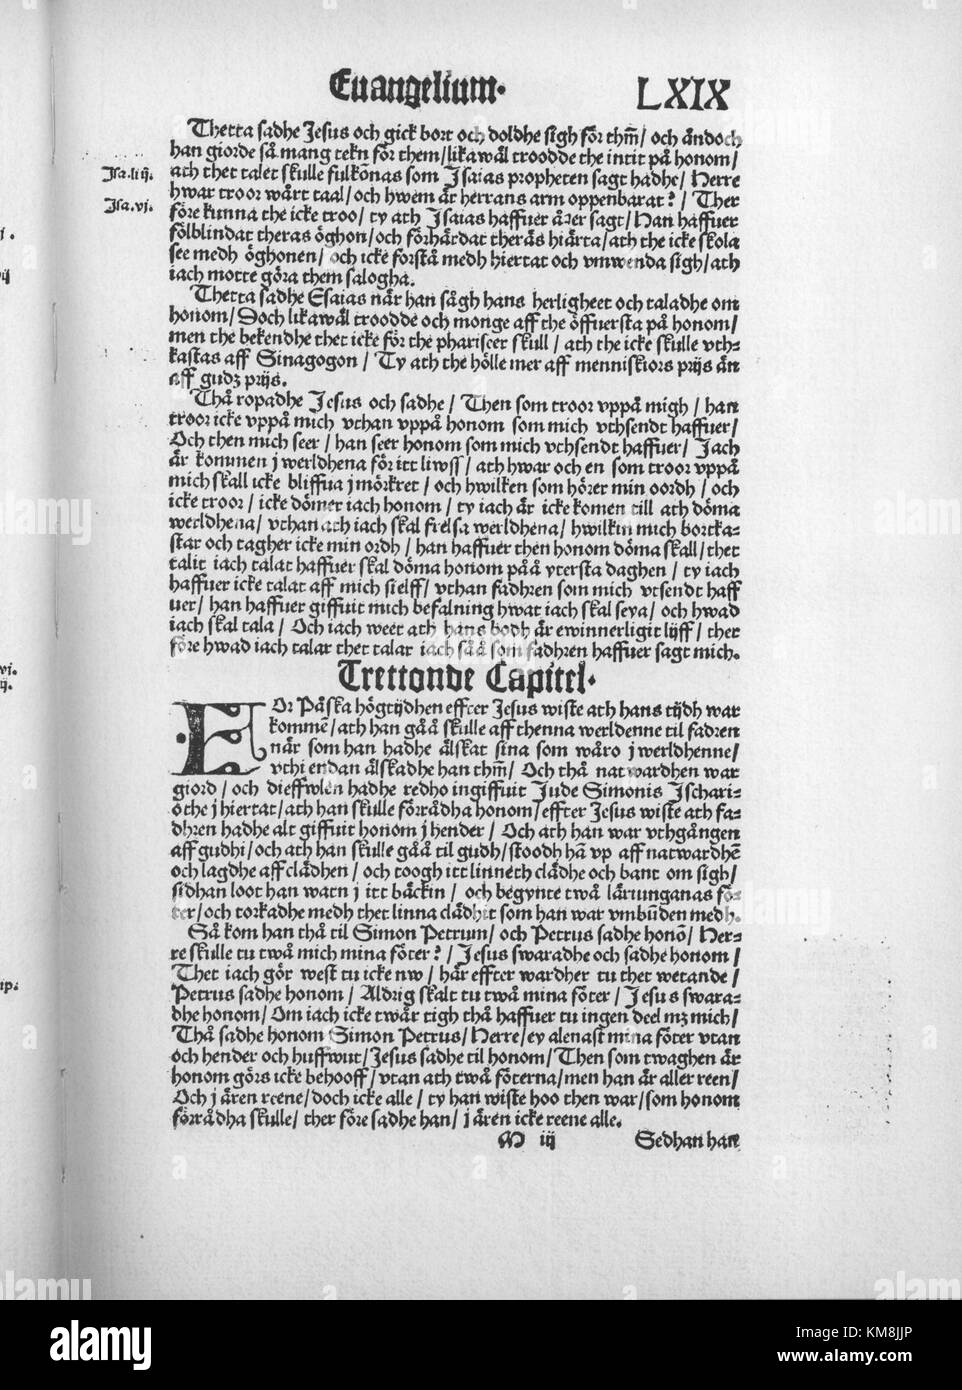 Euangelium. LXIX
Thetta sadhe Jesus och gick bort och doldhe sigh för thm̃/ och ändoch
han giorde så mang tekn för them/ likawäl troodde the intit på honom/
Isa.liij. ath thet talet skulle fulkõnas som Isaias propheten sagt hadhe/ Herre
hwar troor wårt taal/ och hwem är herrans arm oppenbarat?/ Ther
Isa.vj. före kunna the icke troo/ ty ath Isaias haffuer äɀer sagt/ Han haffuer
fölblindat theras öghon/ och förhärdat theräs hiärta/ ath the icke skola
see medh öghonen/ och icke forstå medh hiertat och vmwenda sigh/ ath
iach motte göra them salogha.
Thetta sadhe Esaias när han sågh hans herligheet och taladhe om
honom/ Doch likawäl troodde och monge aff the öffuersta på honom/
men the bekendhe thet icke för the phariseer skull/ ath the icke skulle vth=
kastas aff Sinagogon/ Ty ath the hölle mer aff menniskiors prijs än
aff gudz prijs.
Thå ropadhe Jesus och sadhe/ Then som troor vppå migh/ han
troor icke vppå mich vthan vppå honom som mich vthsendt haffuer/
Och then mich seer/ han seer honom som mich vthsendt haffuer/ Jach
är kommen j werldhena för itt liwss/ ath hwar och en som troor vppå
mich skall icke bliffua j mörkret/ och hwilken som hörer min oordh/ och
icke troor/ icke dömer iach honom/ ty iach är icke komen till ath döma
werldhena/ vthan ath iach skal frelsa werldhena/ hwilkin mich bortka=
star och tagher icke min ordh/ han haffuer then honom döma skall/ thet
talit iach talat haffuer skal döma honom påå ytersta daghen/ ty iach
haffuer icke talat aff mich sielff/ vthan fadhren som mich vtsendt haff
uer/ han haffuer giffuit mich befalning hwat iach skal seya/ och hwad
iach skal tala/ Och iach weet ath hans bodh är ewinnerligit lijff/ ther
före hwad iach talar thet talar iach såå som fadhren haffuer sagt mich.
Trettonde Capitel.
FOr Påska högtijdhen effter Jesus wiste ath hans tijdh war
kommẽ/ ath han gåå skulle aff thenna werldenne til fadren
när som han hadhe älskat sina som wåro j werldhenne/
vthi endan älskadhe han thm̃/ Och thå natwardhen war
giord/ och dieffwlen hadhe redho ingiffuit Jude Simonis Ischari=
othe j hiertat/ ath han skulle förrådha honom/ effter Jesus wiste ath fa=
dhren hadhe alt giffuit honom j hender/ Och ath han war vthgången
aff gudhi/ och ath han skulle gåå til gudh/ stoodh hã vp aff natwardhẽ
och lagdhe aff clädhen/ och toogh itt linneth clädhe och bant om sigh/
sidhan loot han watn j itt bäckin/ och begynte twå läriunganas fö=
ter/ och torkadhe medh thet linna clädhit som han war vmbũden medh.
Så kom han thå til Simon Petrum/ och Petrus sadhe honõ/ Her=
re skulle tu twå mich mina föter?/ Jesus swaradhe och sadhe honom/
Thet iach gör west tu icke nw/ här effter wardher tu thet wetande/
Petrus sadhe honom/ Aldrig skalt tu twå mina föter/ Jesus swara=
dhe honom/ Om iach icke twår tigh thå haffuer tu ingen deel mz mich/
Thå sadhe honom Simon Petrus/ Herre/ ey alenast mina föter vtan
och hender och huffwut/ Jesus sadhe til honom/ Then som twaghen är
honom görs icke behooff/ vtan ath twå föterna/ men han är aller reen/
Och j ären reene/ doch icke alle/ ty han wiste hoo then war/ som honom
förrådha skulle/ ther före sadhe han/ j ären icke reene alle.
M iij Sedhan han
alamy
Image ID: KM8JJP
www.alamy.com